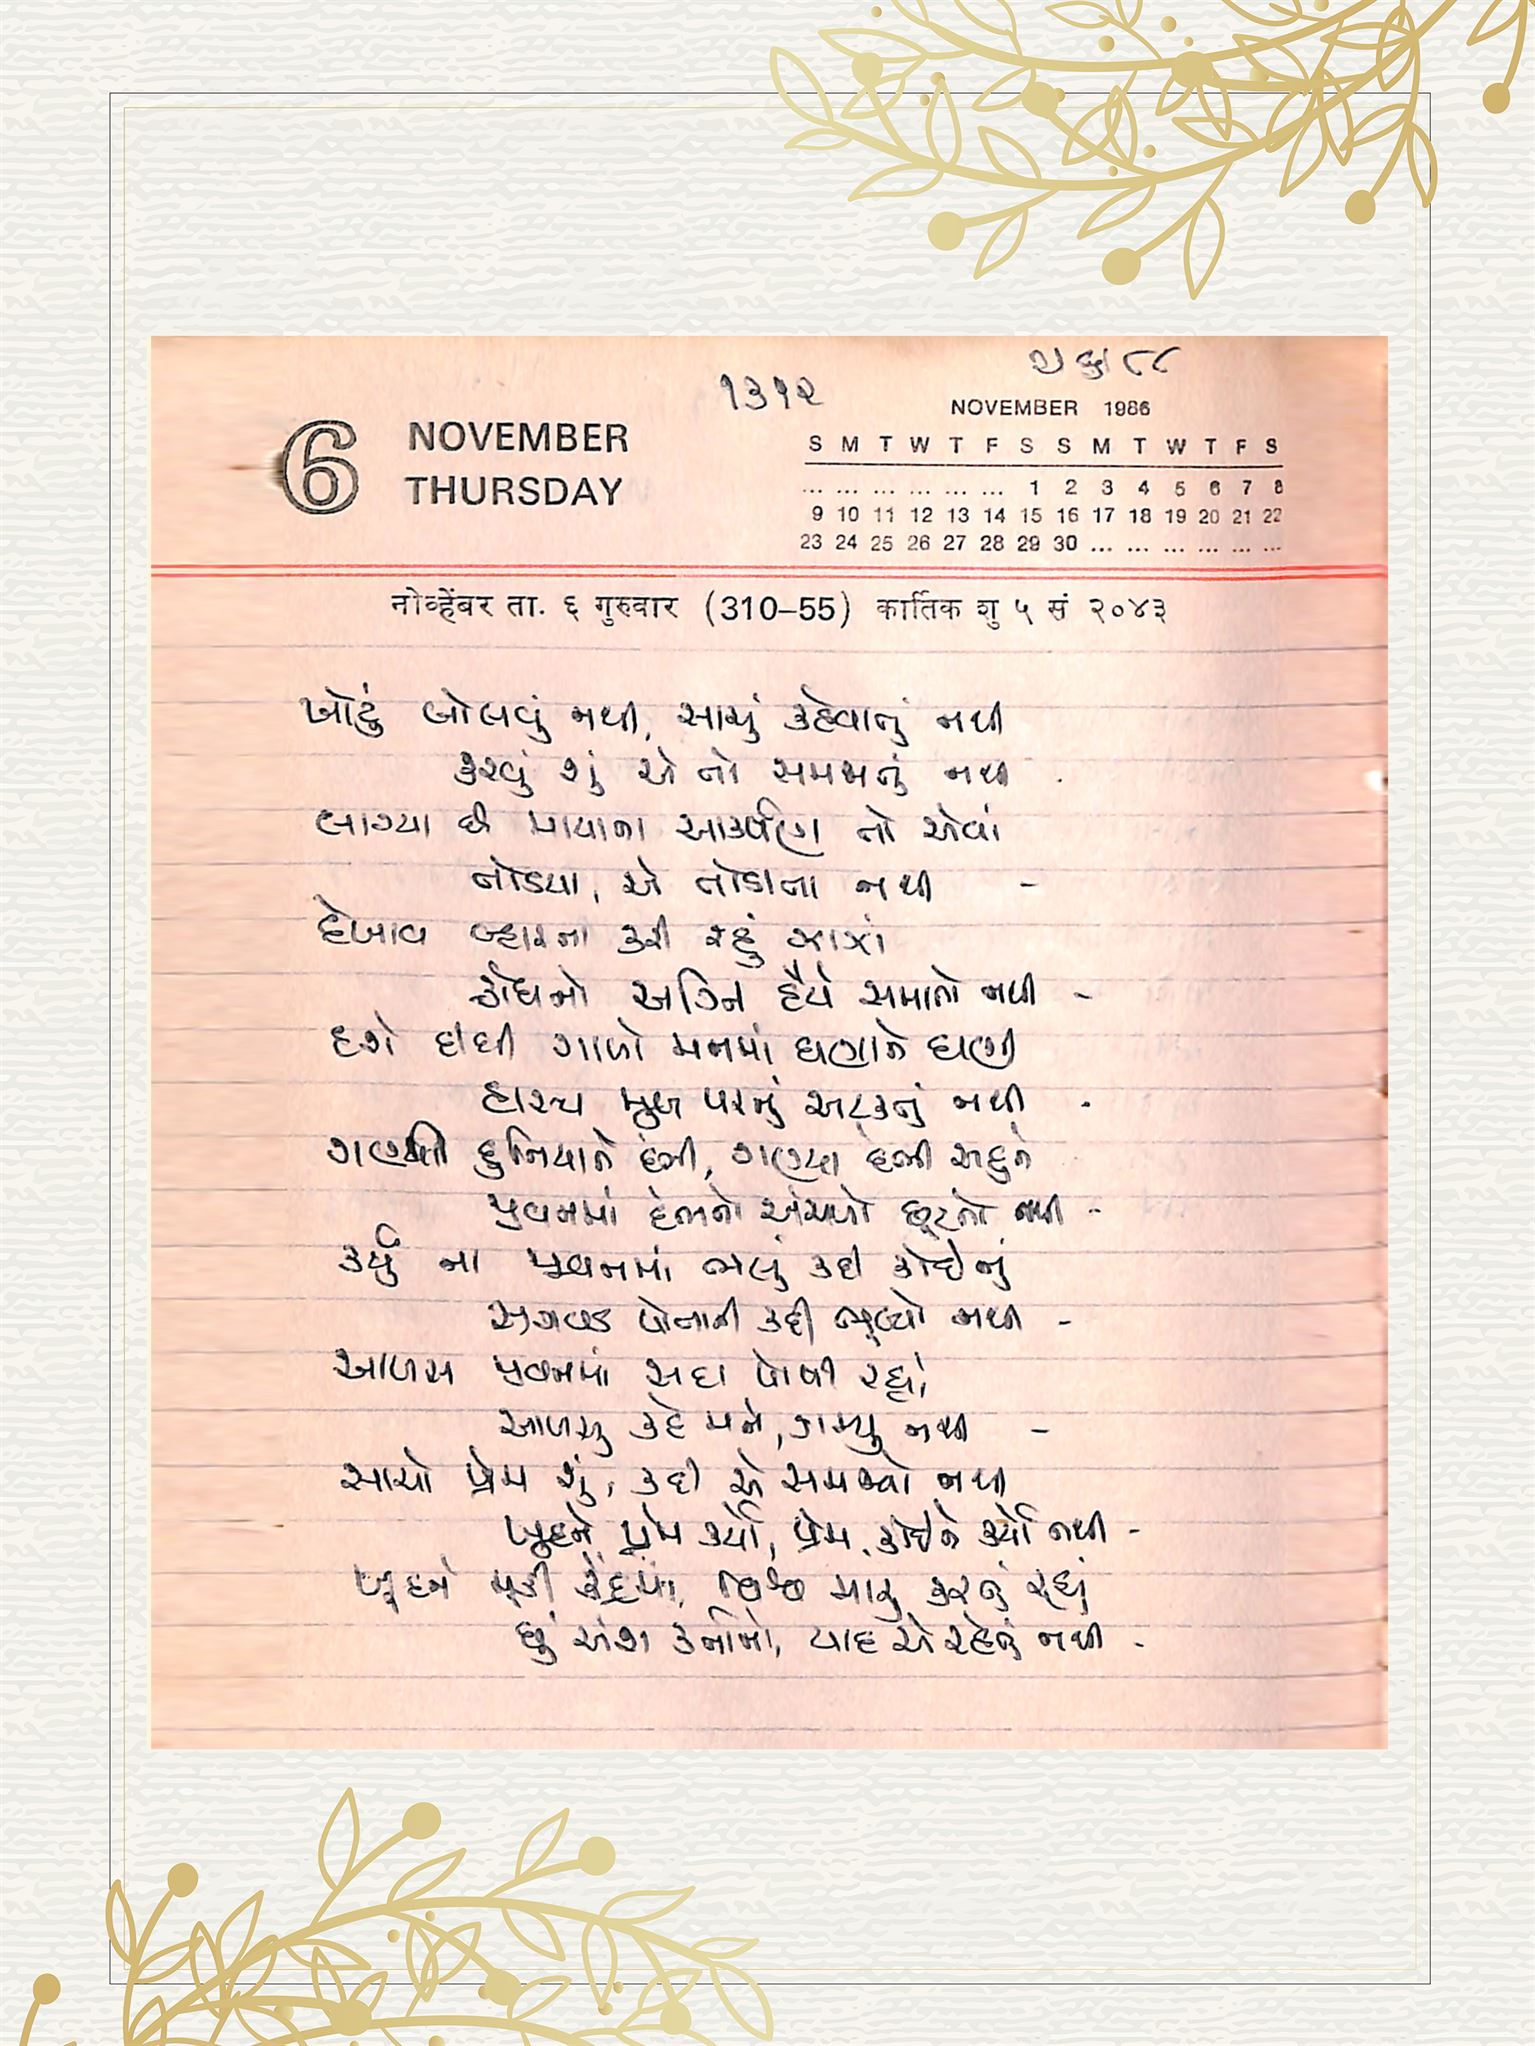 ૧૩૧૨
6 NOVEMBER THURSDAY
NOVEMBER 1986
S M T W T F S S M T W T F S
... ... ... ... ... ... 1 2 3 4 5 6 7 8
9 10 11 12 13 14 15 16 17 18 19 20 21 22
23 24 25 26 27 28 29 30 ... ... ... ... ... ...
नोव्हेंबर ता. ६ गुरुवार (310–55) कार्तिक शु ५ सं २०४३
ખોટું બોલવું નથી, સાચું કહેવાતું નથી
કરવું શું એ તો સમજાતું નથી
લાગ્યા છે માયાના આકર્ષણ તો એવાં
તોડયા, એ તોડાતા નથી -
દેખાવ બ્હારના કરી રહું ઝાઝાં
ક્રોધનો અગ્નિ હૈયે સમાતો નથી -
દઇને દીધી ગાળો મનમાં ઘણાને ઘણી
હાસ્ય મુખ પરનું અટકતું નથી -
દુનિયાને દંભી, ગણ્યા દંભી સહુને
જીવનમાં દંભનો અંચળો છૂટતો નથી -
કર્યું ના જીવનમાં ભલું કદી કોઈનું
સગવડ પોતાની કદી ભૂલ્યો નથી -
આળસ જીવનમાં સદા પોષી રહ્યાં
આળસુ કહે મને, ગમ્યુ નથી -
સાચો પ્રેમ શું, કદી એ સમજ્યો નથી
ખુદને પ્રેમ કર્યો, પ્રેમ કોઈને કર્યો નથી -
ખૂદને મૂકી કેંદ્રમાં, ચિત્ત મારૂ ફરતું રહ્યું
છું અંશ કર્તાનો, યાદ એ રહેતું નથી -